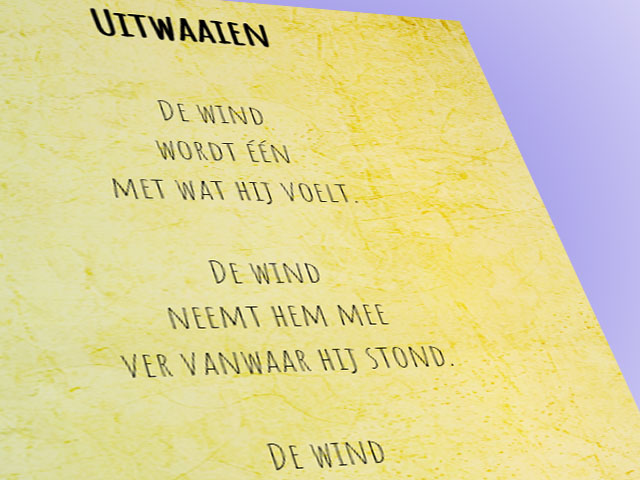 Uitwaaien
De wind
wordt één
met wat hij voelt.
De wind
neemt hem mee
ver vanwaar hij stond.
De wind